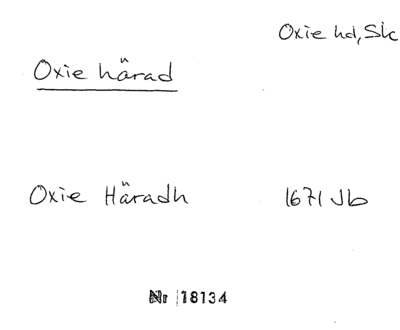 Oxie hd, Sk
Oxie härad
Oxie Häradh 1671 Jb
Nr 18134